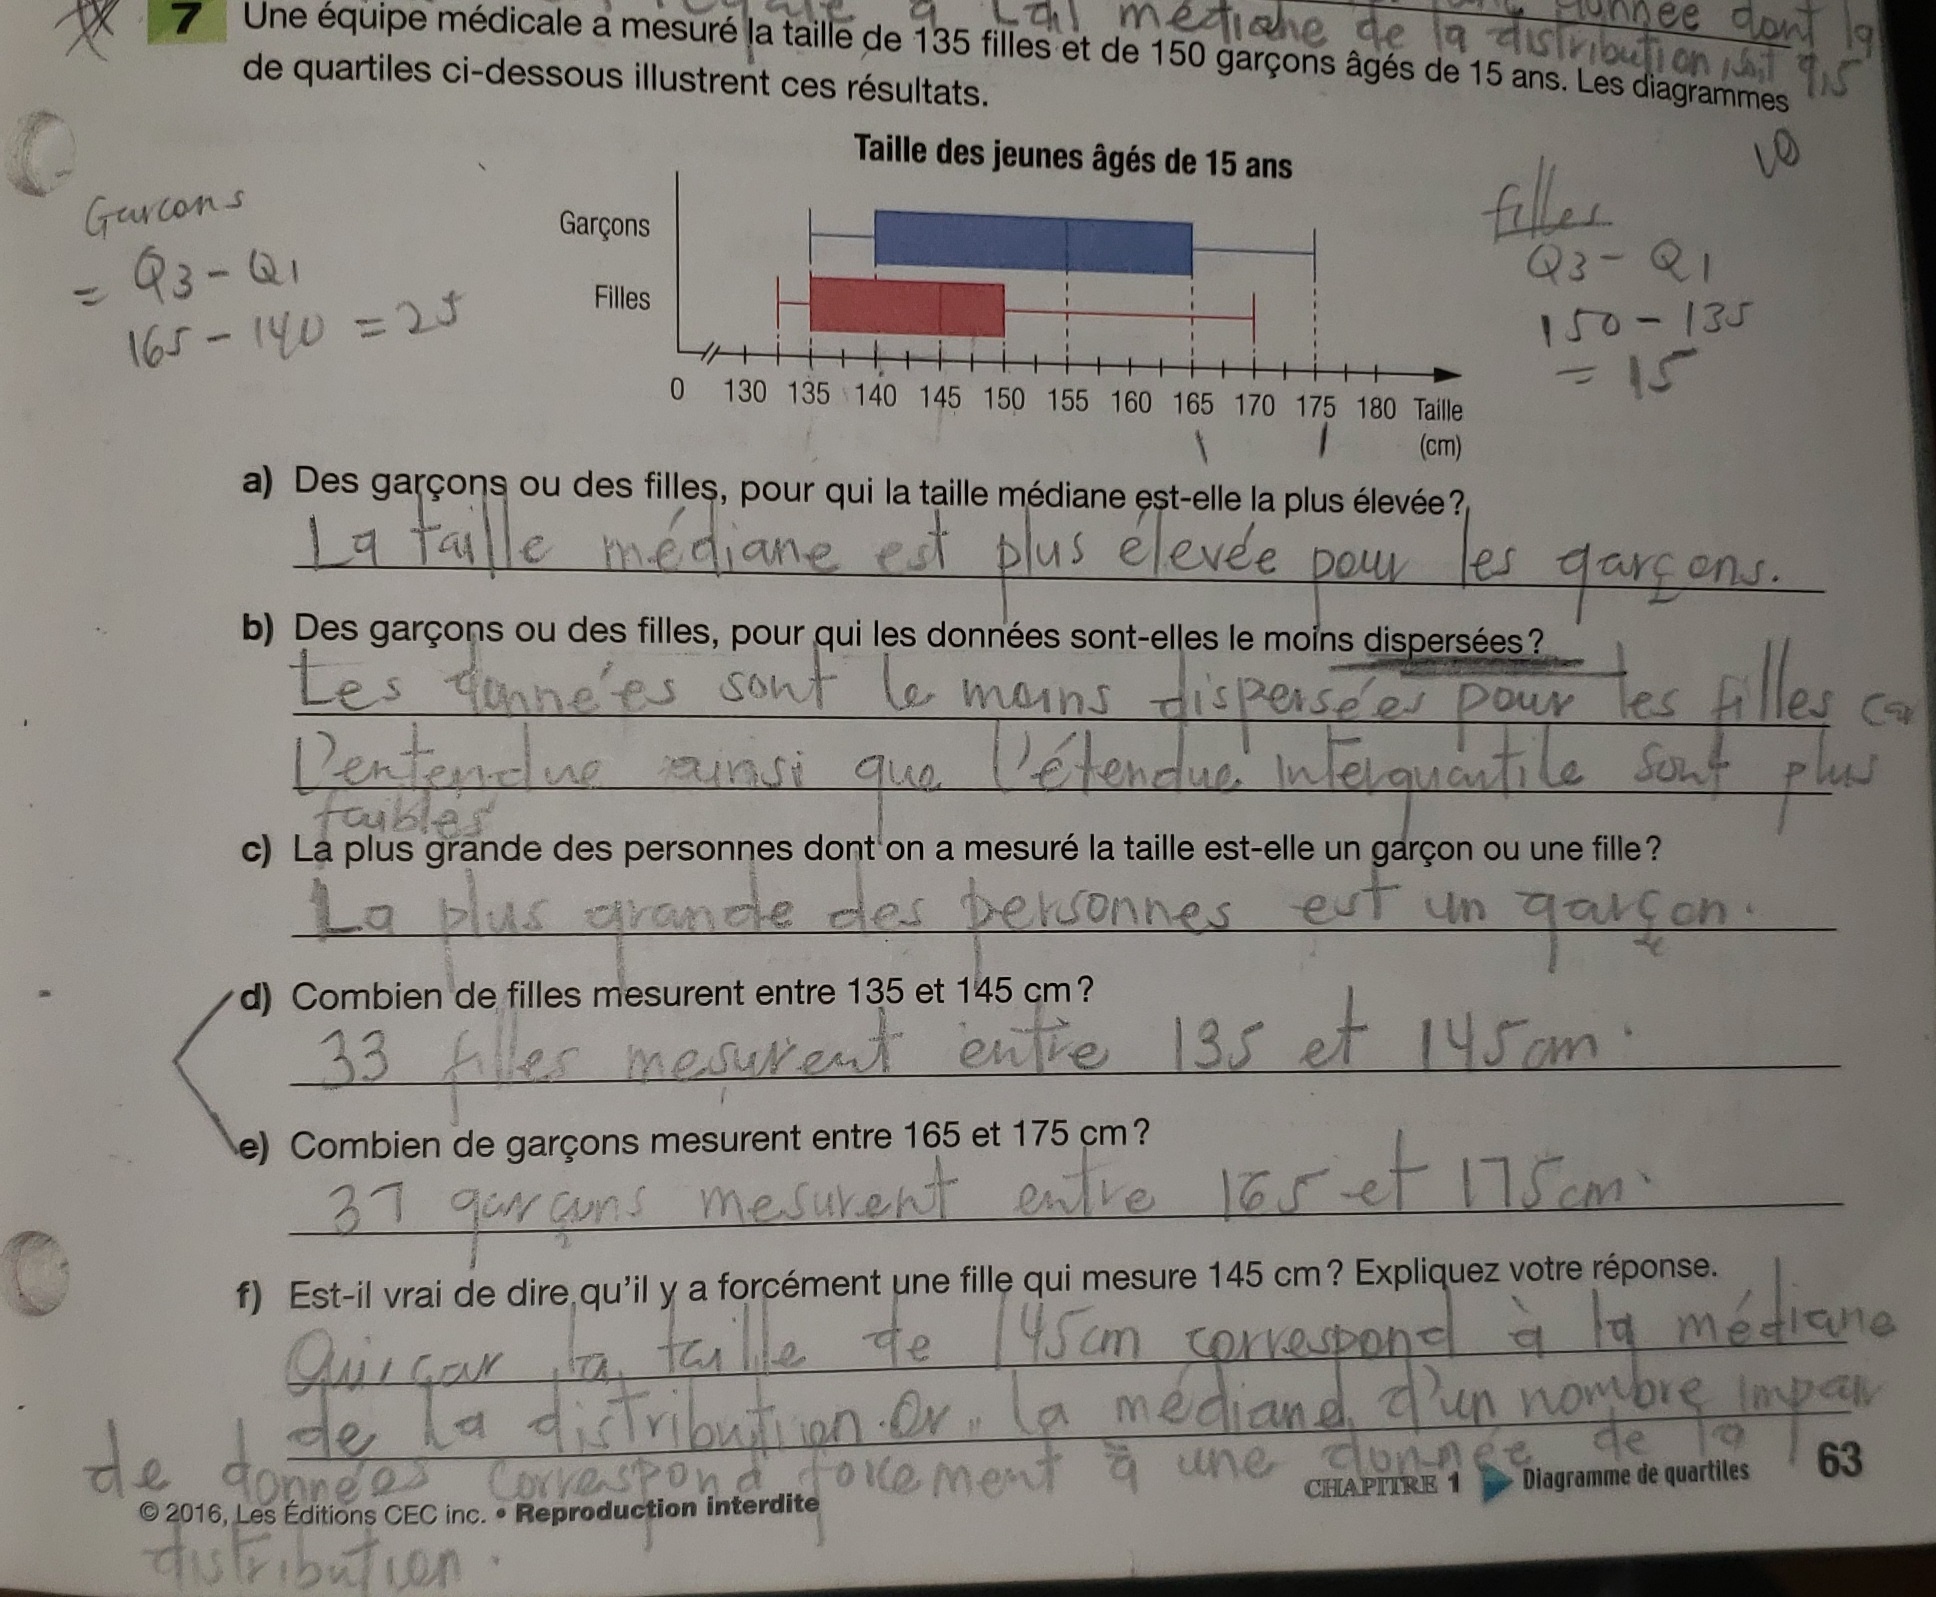 médiane de la distribution soit 9,5
7 Une équipe médicale a mesuré la taille de 135 filles et de 150 garçons âgés de 15 ans. Les diagrammes
de quartiles ci-dessous illustrent ces résultats.
Taille des jeunes âgés de 15 ans
Garcons
= Q3 - Q1
165 - 140 = 25
Garçons
Filles
0 130 135 140 145 150 155 160 165 170 175 180 Taille
(cm)
filles
Q3 - Q1
150 - 135
= 15
a) Des garçons ou des filles, pour qui la taille médiane est-elle la plus élevée?
La taille médiane est plus élevée pour les garçons.
b) Des garçons ou des filles, pour qui les données sont-elles le moins dispersées?
Les données sont le moins dispersées pour les filles car
l'entendue ainsi que l'étendue interquartile sont plus
faibles
c) La plus grande des personnes dont on a mesuré la taille est-elle un garçon ou une fille?
La plus grande des personnes est un garçon.
d) Combien de filles mesurent entre 135 et 145 cm?
33 filles mesurent entre 135 et 145 cm.
e) Combien de garçons mesurent entre 165 et 175 cm?
37 garçons mesurent entre 165 et 175 cm.
f) Est-il vrai de dire qu'il y a forcément une fille qui mesure 145 cm? Expliquez votre réponse.
Oui car la taille de 145 cm correspond à la médiane
de la distribution. Or, la médiane d'un nombre impair
de données correspond forcement à une donnée de la
distribution.
CHAPITRE 1 Diagramme de quartiles 63
© 2016, Les Éditions CEC inc. • Reproduction interdite